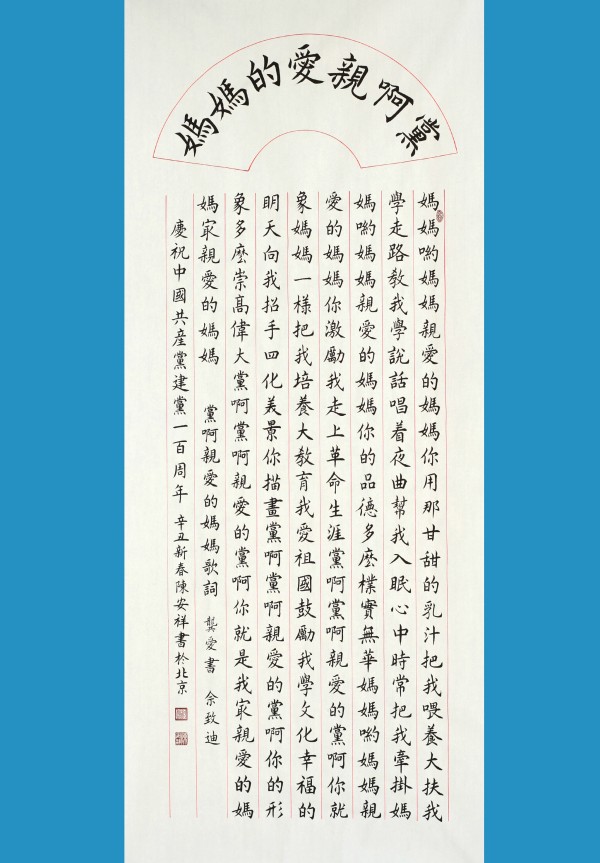 黨啊親愛的媽媽
媽媽喲媽媽親愛的媽媽你用那甘甜的乳汁把我喂養大扶我
學走路教我學說話唱着夜曲幫我入眠心中時常把我牽掛媽
媽喲媽媽親愛的媽媽你的品德多麼樸實無華媽媽喲媽媽親
愛的媽媽你激勵我走上革命生涯黨啊黨啊親愛的黨啊你就
象媽媽一樣把我培養大教育我愛祖國鼓勵我學文化幸福的
明天向我招手四化美景你描畫黨啊黨啊親愛的黨啊你的形
象多麼崇高偉大黨啊黨啊親愛的黨啊你就是我冣親愛的媽
媽冣親愛的媽媽 黨啊親愛的媽媽歌詞 龔愛書 佘致迪
慶祝中國共産黨建黨一百周年 辛丑新春陳安祥書於北京